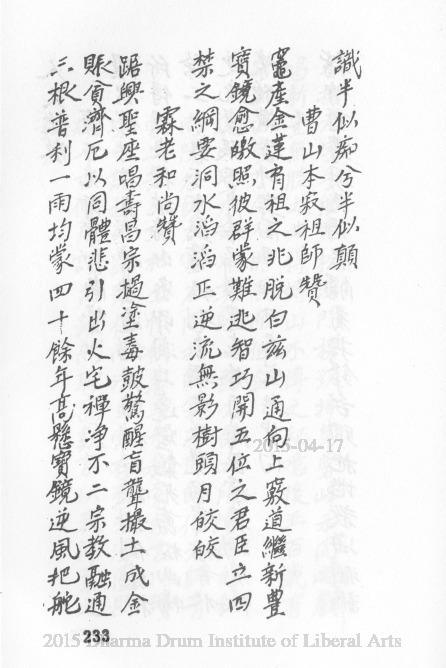 識半似痴兮半似顛
曹山本寂祖師贊
竈產金蓮有祖之兆脫白茲山通向上竅道繼新豊
寶鏡愈皦照彼群蒙難逃智巧開五位之君臣立四
禁之綱要洞水滔滔正逆流無影樹頭月皎皎
霖老和尚贊
踞興聖座唱壽昌宗撾塗毒鼓驚醒盲聾撮土成金
賑貧濟厄以同體悲引出火宅禪净不二宗教融通
三根普利一雨均蒙四十餘年高懸寶鏡逆風把舵
2015-04-17
233
2015 Dharma Drum Institute of Liberal Arts